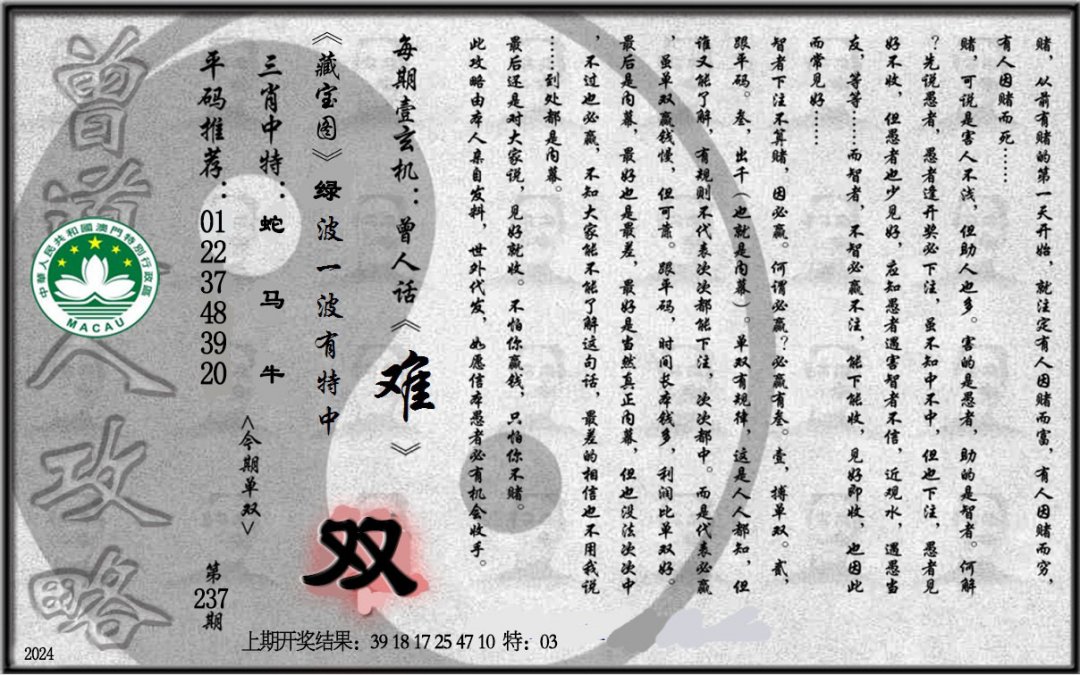 赌，从前有赌的第一天开始，就注定有人因赌而富，有人因赌而穷，
有人因赌而死……
赌，可说是害人不浅，但助人也多。害的是愚者，助的是智者。何解
？先说愚者，愚者逢开奖必下注，虽不知中不中，但也下注，愚者见
好不收，但愚者也少见好，应知愚者遇害智者不信，近观水，遇愚当
友，等等……而智者，不智必赢不注，能下能收，见好即收，也因此
而常见好……
智者下注不算赌，因必赢。何谓必赢？必赢有叁。壹，搏单双。贰，
跟平码。叁，出千（也就是内幕）。单双有规律，这是人人都知，但
谁又能了解，有规则不代表次次都能下注，次次都中。而是代表必赢
，虽单双赢钱慢，但可靠。跟平码，时间长本钱多，利润比单双好。
最后是内幕，最好也是最差，最好是当然真正内幕，但也没法次次中
，不过也必赢，不知大家能不能了解这句话，最差的相信也不用我说
……到处都是内幕。
最后还是对大家说，见好就收。不怕你赢钱，只怕你不赌。
此攻略由本人亲自发料，世外代发，如愿信本愚者必有机会收手。
每期壹玄机：曾人话《难》
《藏宝图》绿波一波有特中
双
三肖中特：蛇 马 牛
<今期单双>
平码推荐：01 22 37 48 39 20
第237期
曾道人攻略
中華人民共和國澳門特別行政區
MACAU
上期开奖结果：39 18 17 25 47 10 特：03
2024